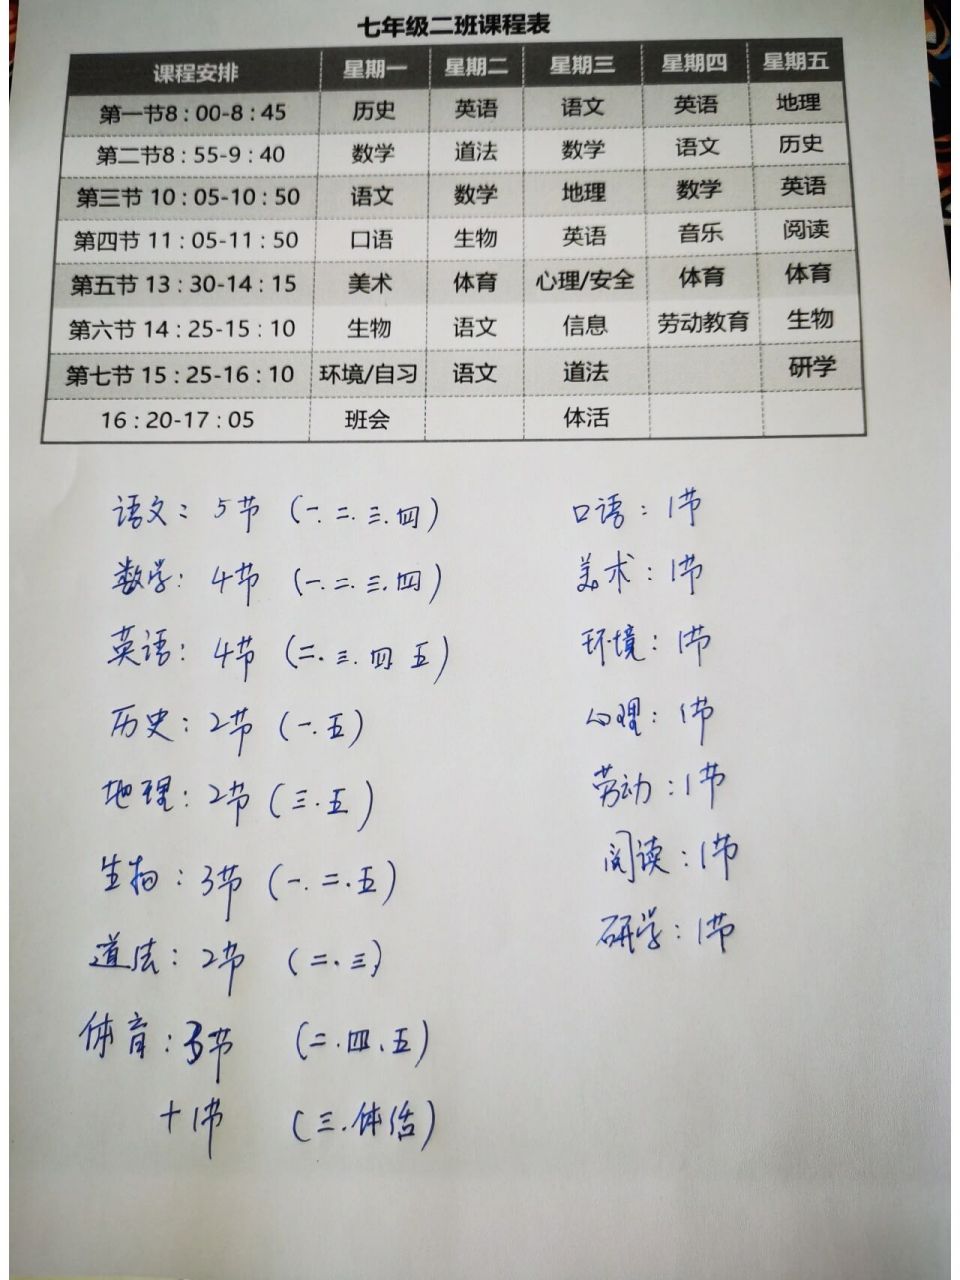 七年级二班课程表
课程安排 星期一 星期二 星期三 星期四 星期五
第一节8:00-8:45 历史 英语 语文 英语 地理
第二节8:55-9:40 数学 道法 数学 语文 历史
第三节 10:05-10:50 语文 数学 地理 数学 英语
第四节 11:05-11:50 口语 生物 英语 音乐 阅读
第五节 13:30-14:15 美术 体育 心理/安全 体育 体育
第六节 14:25-15:10 生物 语文 信息 劳动教育 生物
第七节 15:25-16:10 环境/自习 语文 道法 研学
16:20-17:05 班会 体活
语文：5节 (一.二.三.四) 口语：1节
数学：4节 (一.二.三.四) 美术：1节
英语：4节 (二.三.四 五) 环境：1节
历史：2节 (一.五) 心理：1节
地理：2节 (三.五) 劳动：1节
生物：3节 (一.二.五) 阅读：1节
道法：2节 (二.三) 研学：1节
体育：3节 (二.四、五)
+1节 (三.体活)